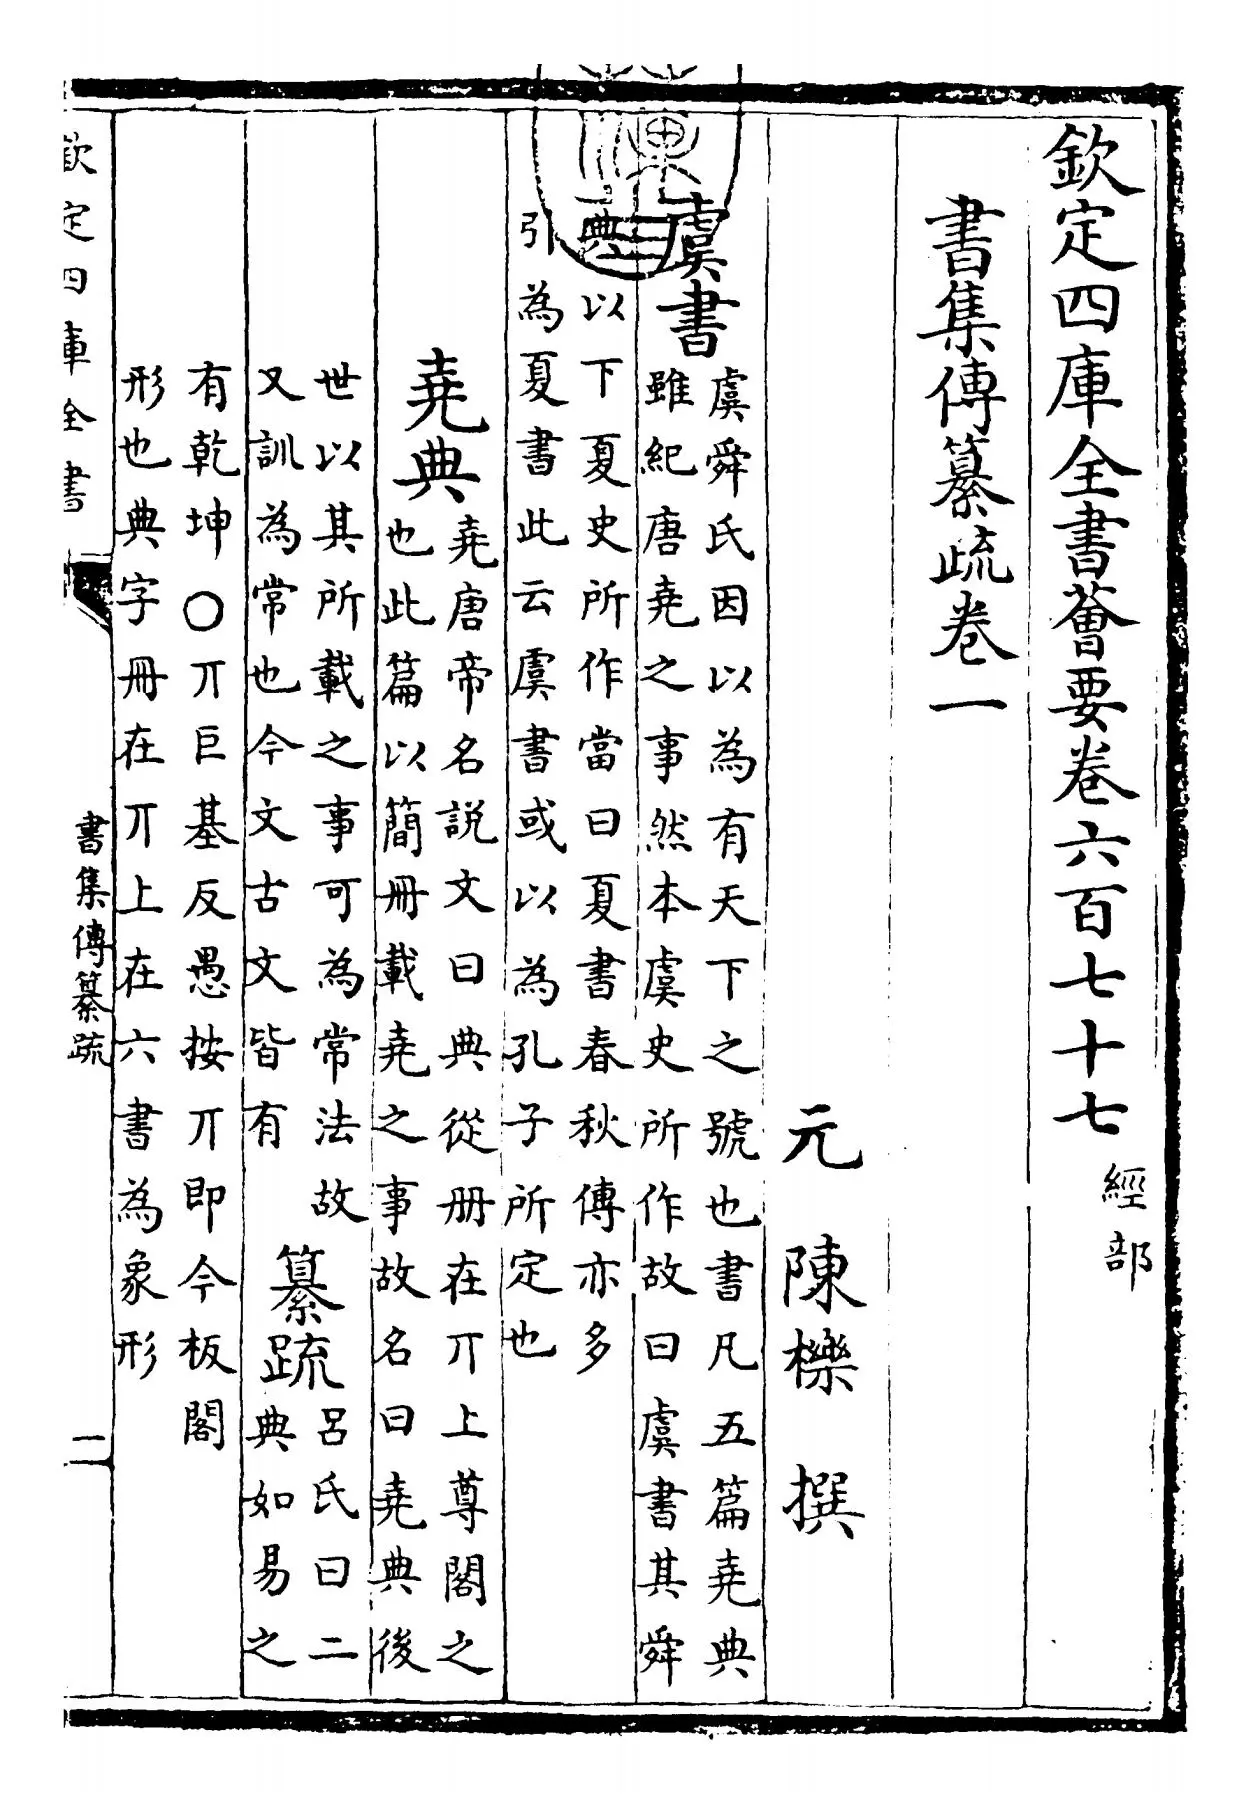 欽定四庫全書薈要卷六百七十七 經部
書集傳纂疏卷一
元 陳櫟 撰
虞書
虞舜氏因以為有天下之號也書凡五篇堯典
雖紀唐堯之事然本虞史所作故曰虞書其舜
典以下夏史所作當曰夏書春秋傳亦多
引為夏書此云虞書或以為孔子所定也
堯典
堯唐帝名説文曰典從册在丌上尊閣之
也此篇以簡冊載堯之事故名曰堯典後
世以其所載之事可為常法故
又訓為常也今文古文皆有
纂疏
呂氏曰二
典如易之
有乾坤〇丌巨基反愚按丌即今板閣
形也典字冊在丌上在六書為象形
欽定四庫全書
書集傳纂疏